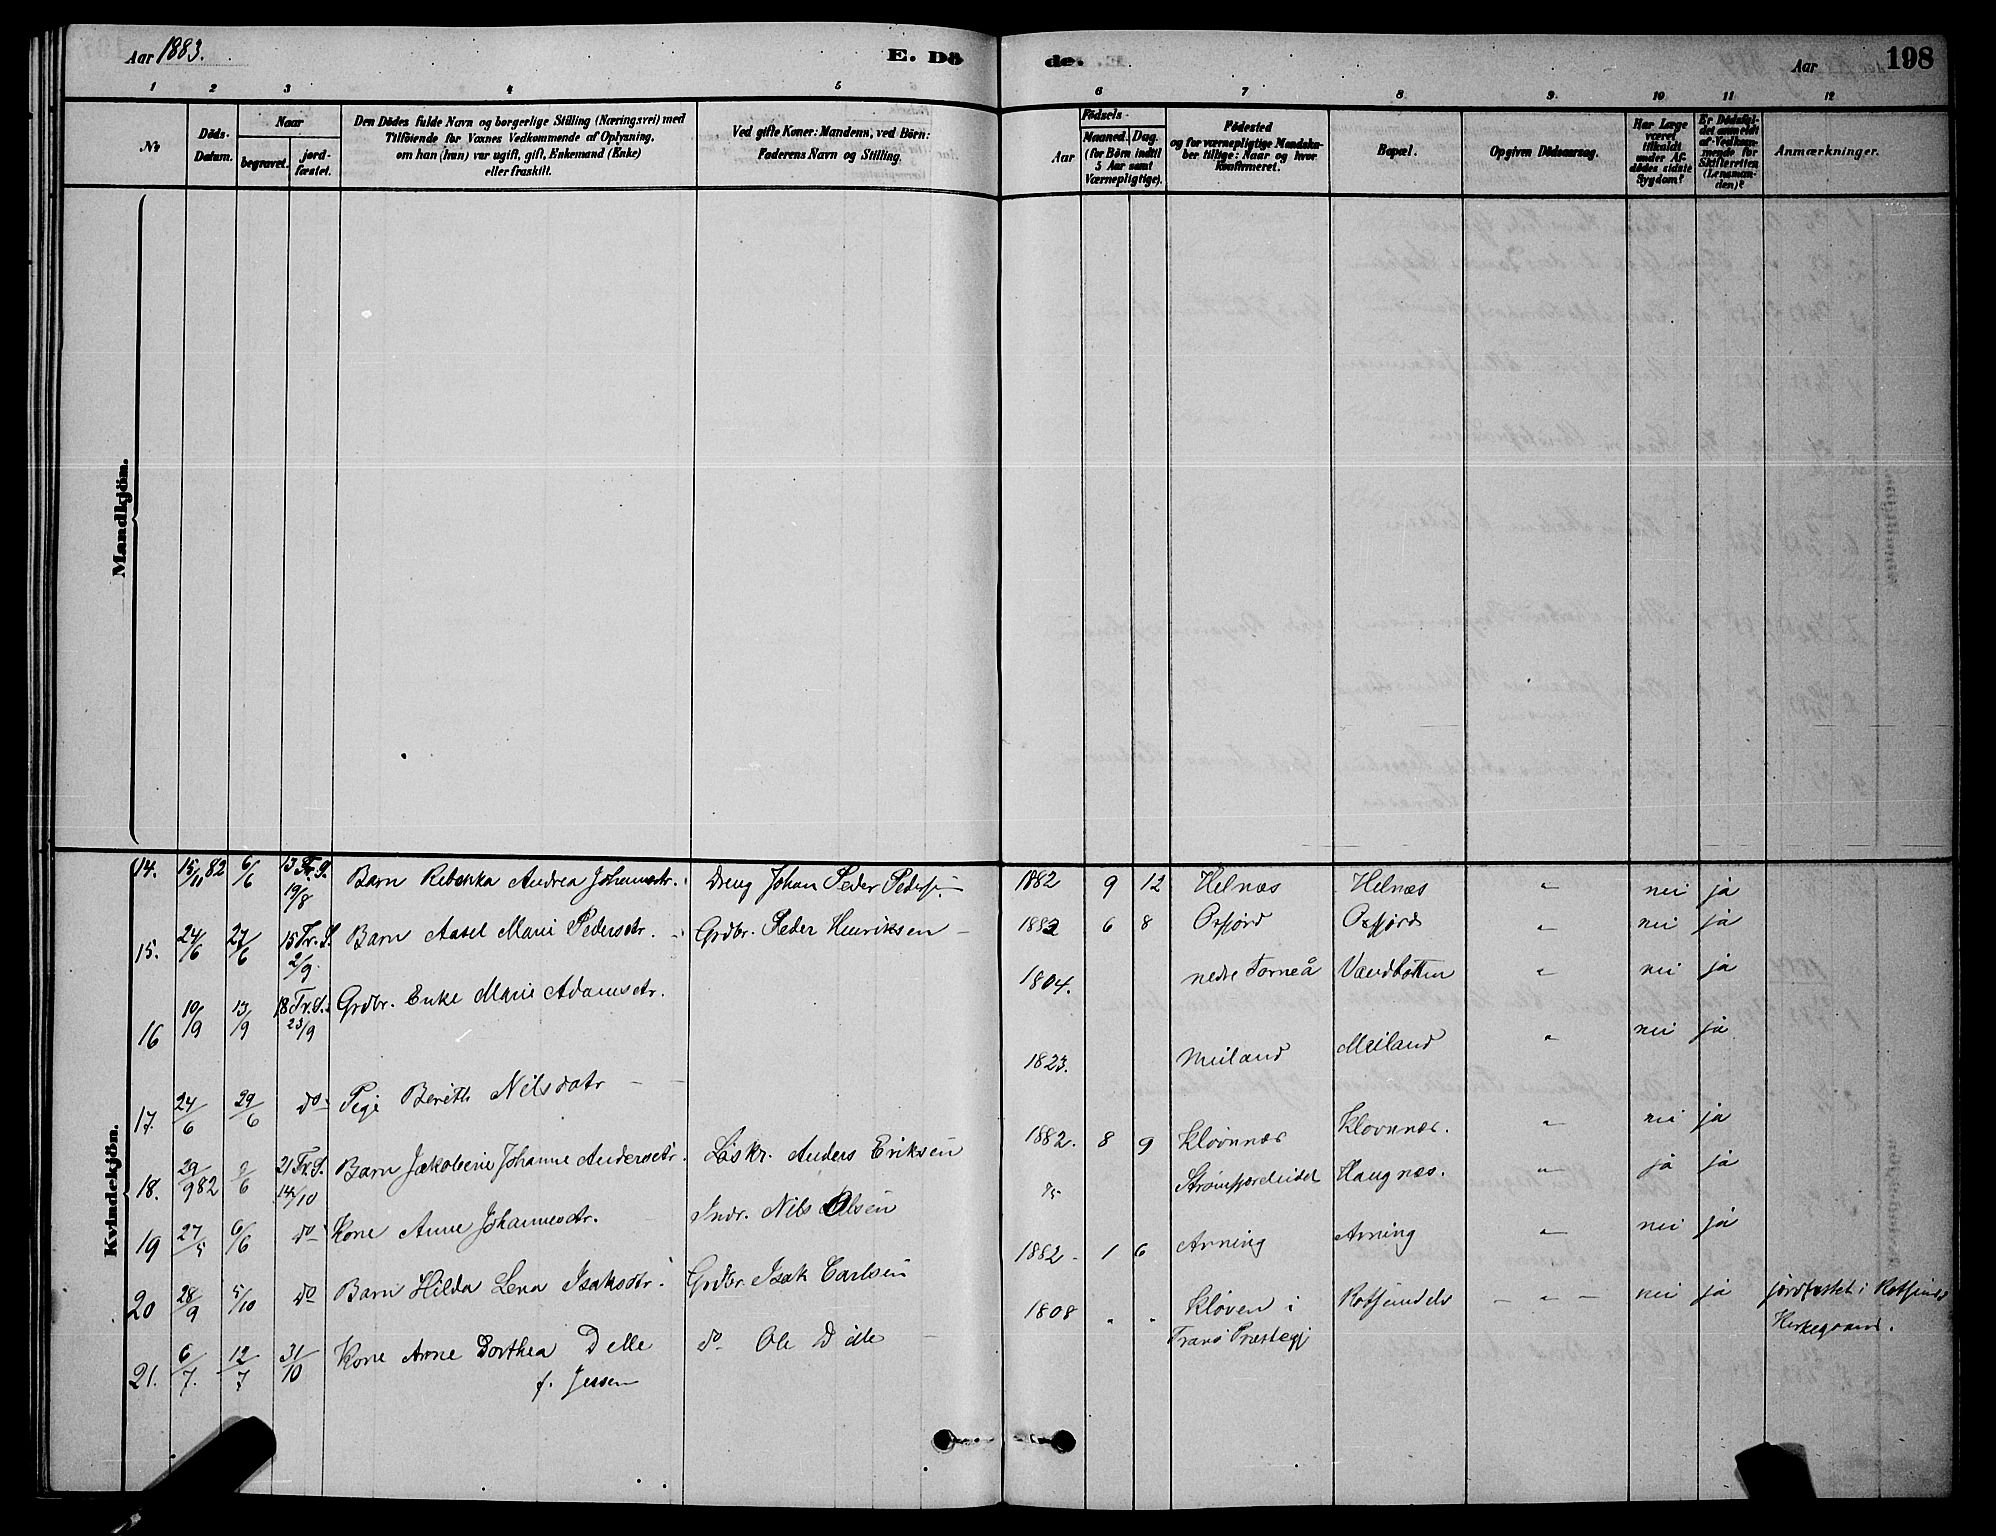 Aar 1883.
E. Dö
de.
Aar
198
1 2 3 4 5 6 7 8. 9. 10 11 12
No
Döds-
Datum.
Naar
begravet.
jord-
fæstet.
Den Dödes fulde Navn og borgerlige Stilling (Næringsvei) med
Tilföiende for Voxnes Vedkommende af Oplysning,
om han (hun) var ugift, gift, Enkemand (Enke)
eller fraskilt.
Ved gifte Koner: Mandens, ved Börn:
Faderens Navn og Stilling.
Födsels-
Aar
Maaned.
Dag.
(for Börn indtil
5 Aar samt
Værnepligtige).
Födested
og for værnepligtige Mandska-
ber tillige: Naar og hvor
konfirmeret.
Bopæl.
Opgiven Dödsaarsag.
Har Læge
været
tilkaldt
under Af-
dødes sidste
Sygdom?
Er Dödsfal-
det anmeldt
af Vedkom-
mende for
Skifteretten
(Lensman-
den)?
Anmærkninger.
Mandkjön.
Kvindekjön.
14. 15/11 82 6/6 13 Tr. S. 19/8 Barn Rebekka Andrea Johansdtr. Dreng Johan Peder Peders. 1882 9 12 Helnæs Helnæs " nei ja
15. 24/6 27/6 15 Tr. S. 2/9. Barn Aasel Marie Pedersdtr. Grdbr. Peder Henriksen 1882 6 8 Oxfjord Oxfjord " nei ja
16 10/9 13/9 18 Tr. S. 23/9 Grdbr. Enke Marie Adamsdtr. 1804. nedre Torneå " nei ja
17. 24/6 29/6 do Pige Berith Nilsdatr 1823. Meiland Meiland " nei ja
18. 29/9 82 6/6 21 Tr. S. 14/10 Barn Jakobine Johanne Andersdtr. Løskr. Anders Eriksen 1882. 8 9 Kløvnnæs Klovnnæs. " nei ja
19 27/5 6/6 do Kone Anne Johannesdtr. Indr. Nils Olsen Haugnæs. " ja ja
20 28/9 5/10 do Barn Hilda Lena Isaksdtr. Grdbr. Isak Carlsen 1882 1 6 Arning Arning " nei ja
21. 6/7. 12/7 31/10 Kone Anne Dorthea Dille do Ole Dille 1808 " " Kløven i Rotsundelv " nei ja jordfæstet i Rotsunds
f. Jessen Tranö Præstegj Kirkegaard.